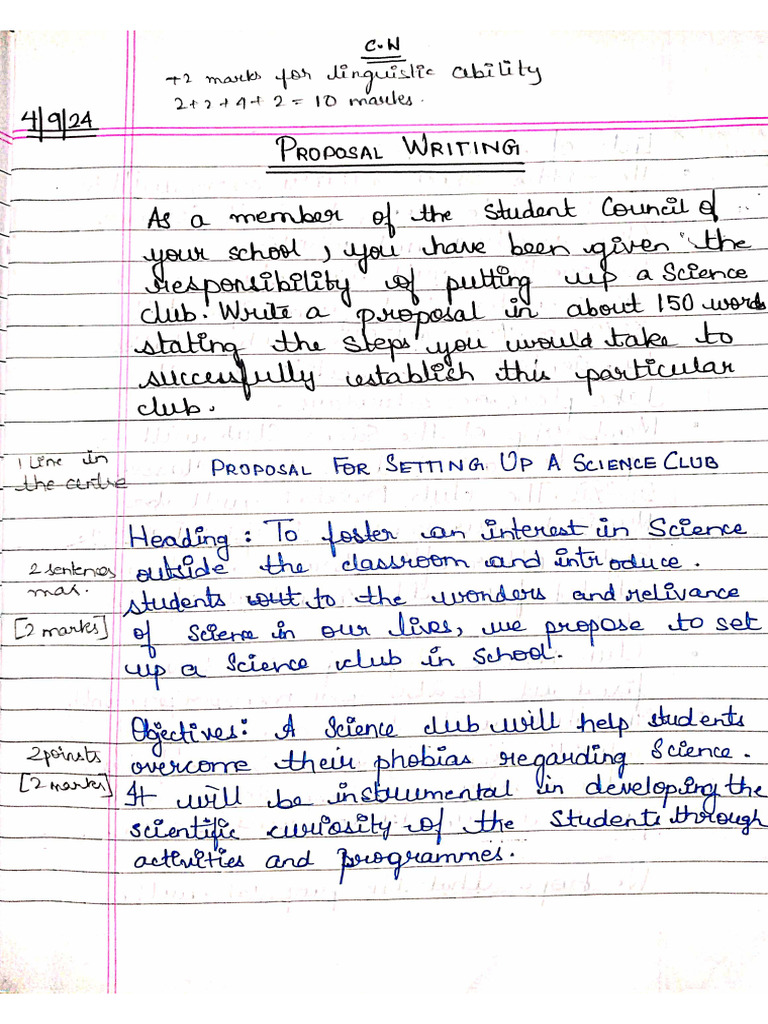 C.W
+2 marks for linguistic ability
2+2+4+2 = 10 marks.
4/9/24
PROPOSAL WRITING
As a member of the Student Council of
your school, you have been given the
responsibility of putting up a Science
club. Write a proposal in about 150 words
stating the steps you would take to
successfully establish this particular
club.
1 line in
the centre
PROPOSAL FOR SETTING UP A SCIENCE CLUB
Heading: To foster an interest in Science
outside the classroom and introduce.
2 sentences
max.
[2 marks]
students to the wonders and relivance
of Science in our lives, we propose to set
up a Science club in School.
Objectives: A Science club will help students
overcome their phobias regarding Science.
2 points
[2 marks]
It will be instrumental in developing the
scientific curiosity of the Students through
activities and programmes.